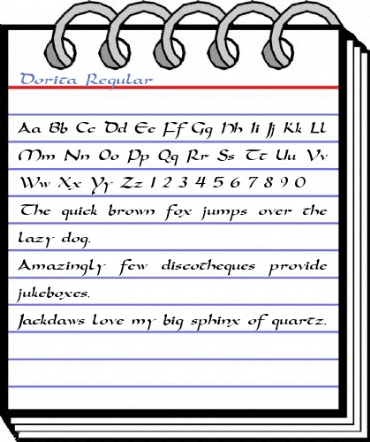 Dorita Regular
Aa Bb Cc Dd Ee Ff Gg Hh Ii Jj Kk Ll
Mm Nn Oo Pp Qq Rr Ss Tt Uu Vv
Ww Xx Yy Zz 1 2 3 4 5 6 7 8 9 0
The quick brown fox jumps over the
lazy dog.
Amazingly few discotheques provide
jukeboxes.
Jackdaws love my big sphinx of quartz.